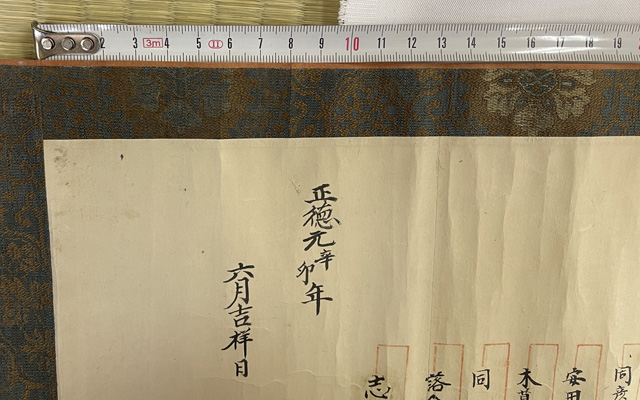 2 3 3m 4 5 6 7 8 9 10 11 12 13 14 15 16 17 18 19
同
安田
木
同
落
志
正徳元辛卯年
六月吉祥日